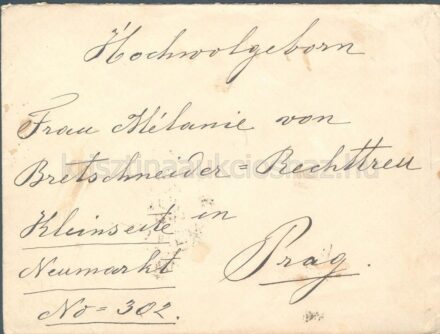 Hochwolgeborn
Frau Mélanie von
Bretschneider=Rechttreu
Kleinseite in
Neumarkt Prag.
No= 302.